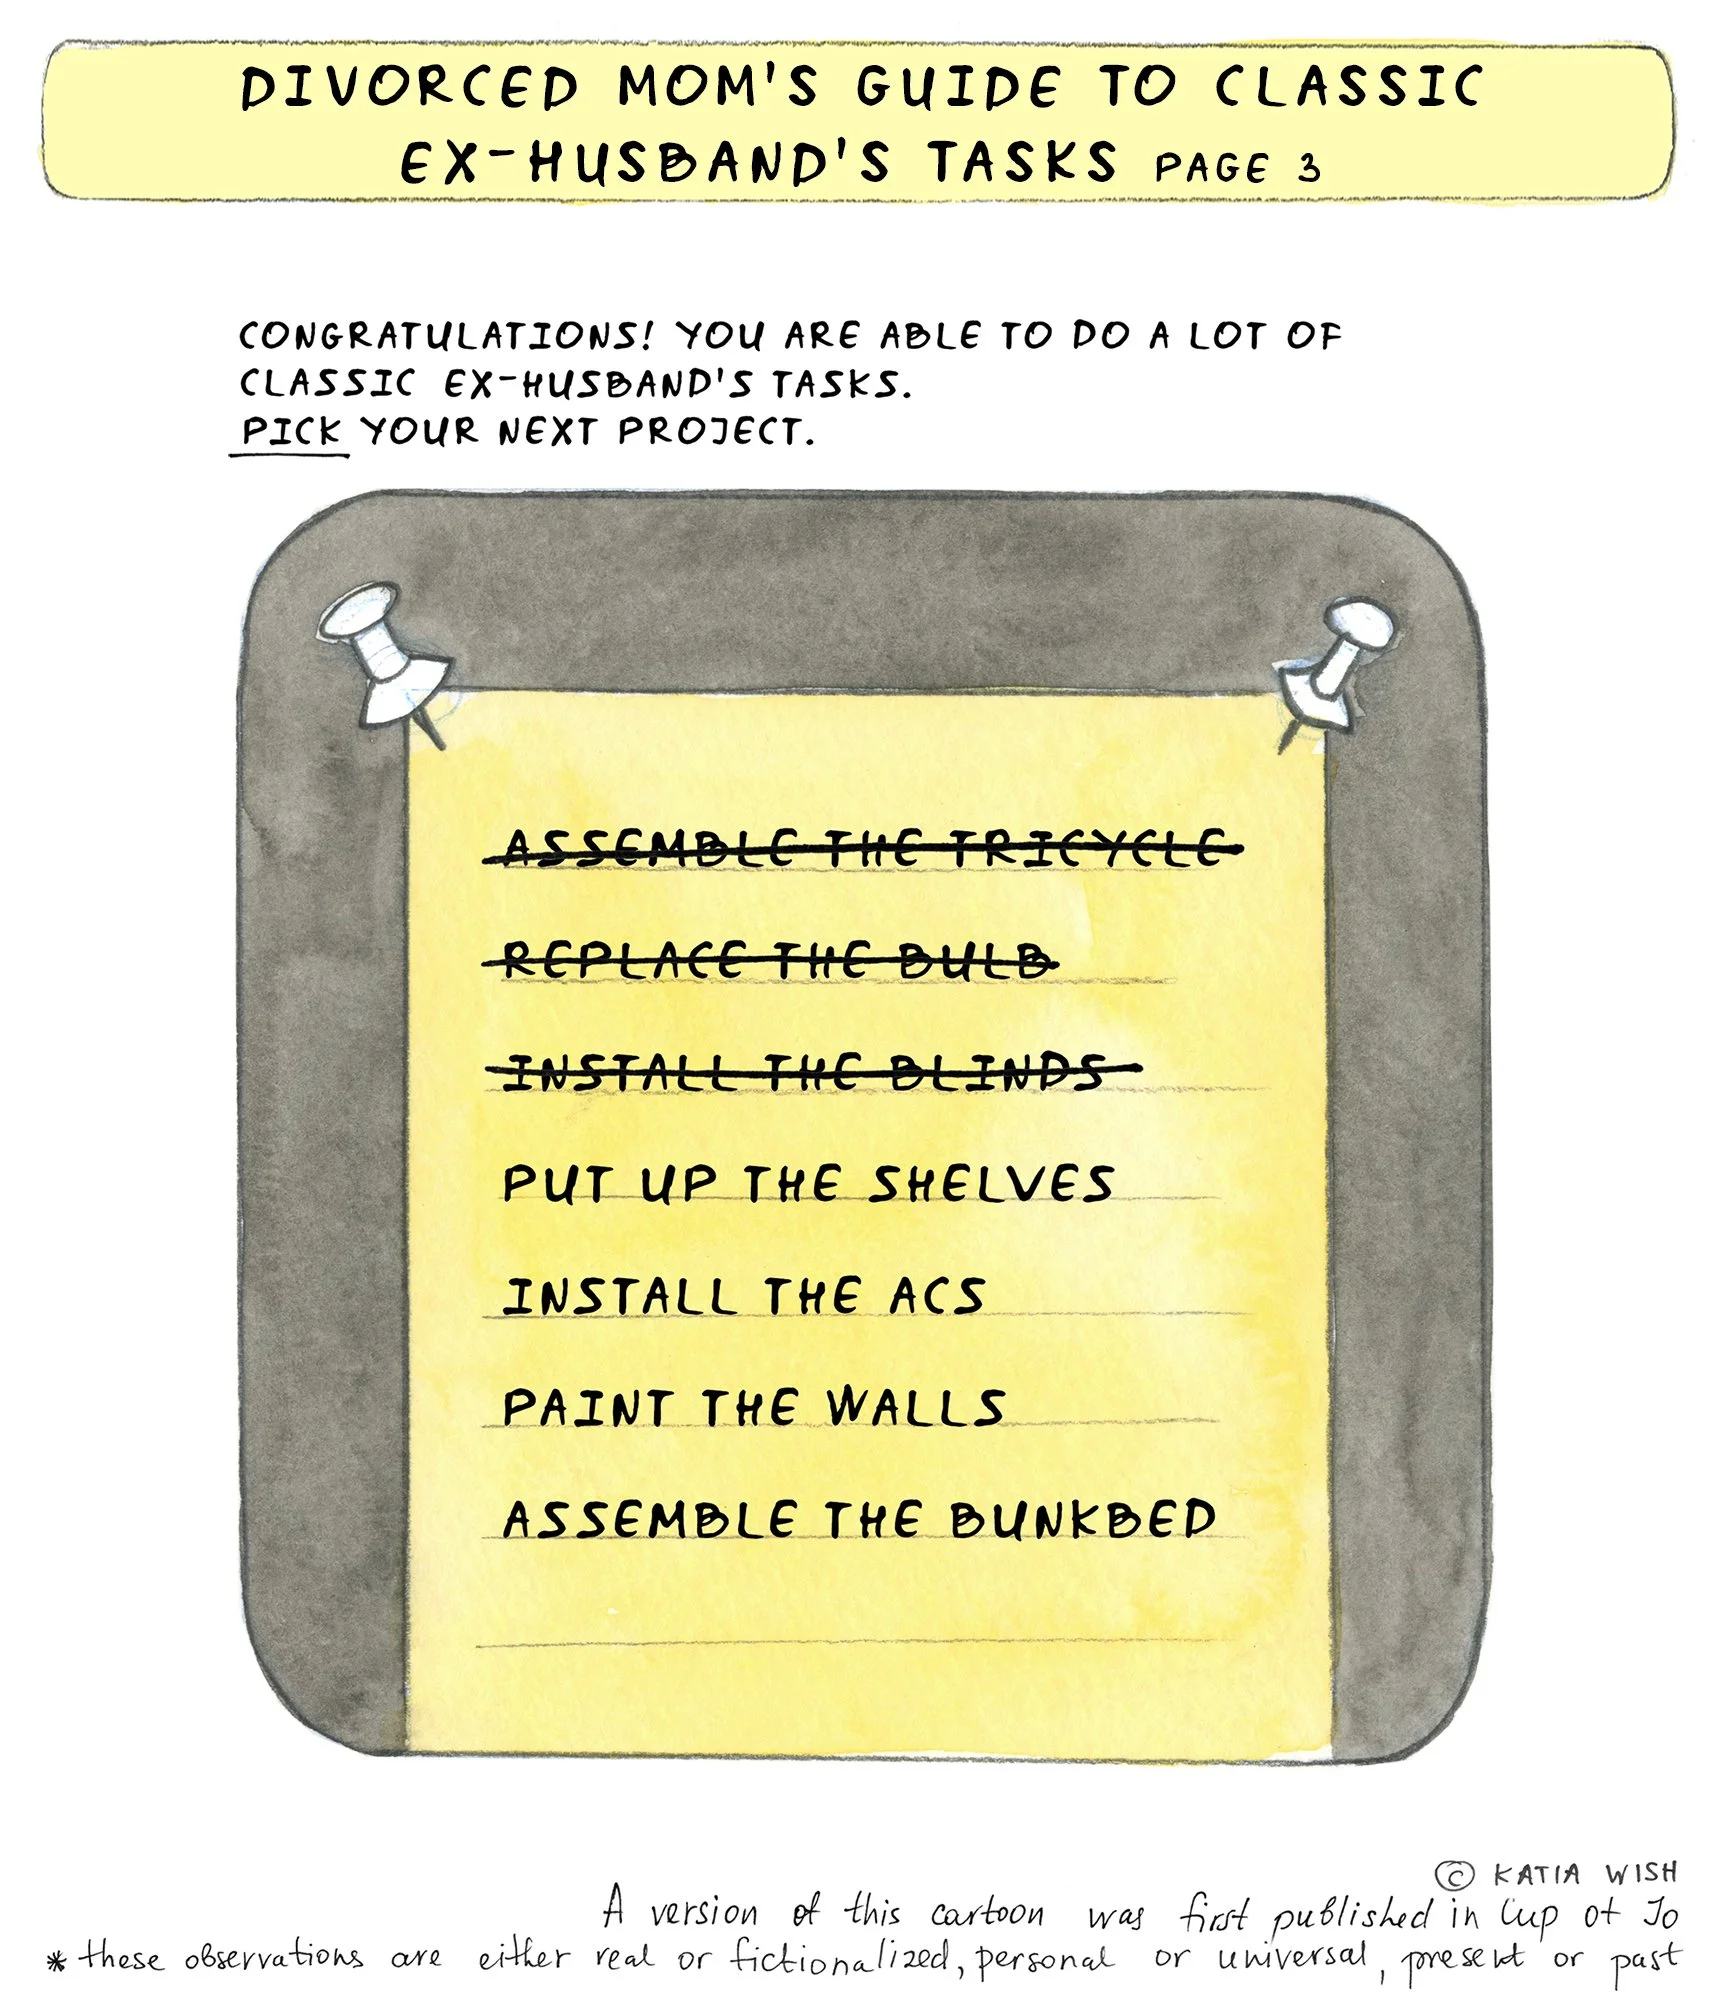 DIVORCED MOM'S GUIDE TO CLASSIC
EX-HUSBAND'S TASKS PAGE 3
CONGRATULATIONS! YOU ARE ABLE TO DO A LOT OF
CLASSIC EX-HUSBAND'S TASKS.
PICK YOUR NEXT PROJECT.
ASSEMBLE THE TRICYCLE
REPLACE THE BULB
INSTALL THE BLINDS
PUT UP THE SHELVES
INSTALL THE ACS
PAINT THE WALLS
ASSEMBLE THE BUNKBED
© KATIA WISH
A version of this cartoon was first published in Cup of Jo
* these observations are either real or fictionalized, personal or universal, present or past